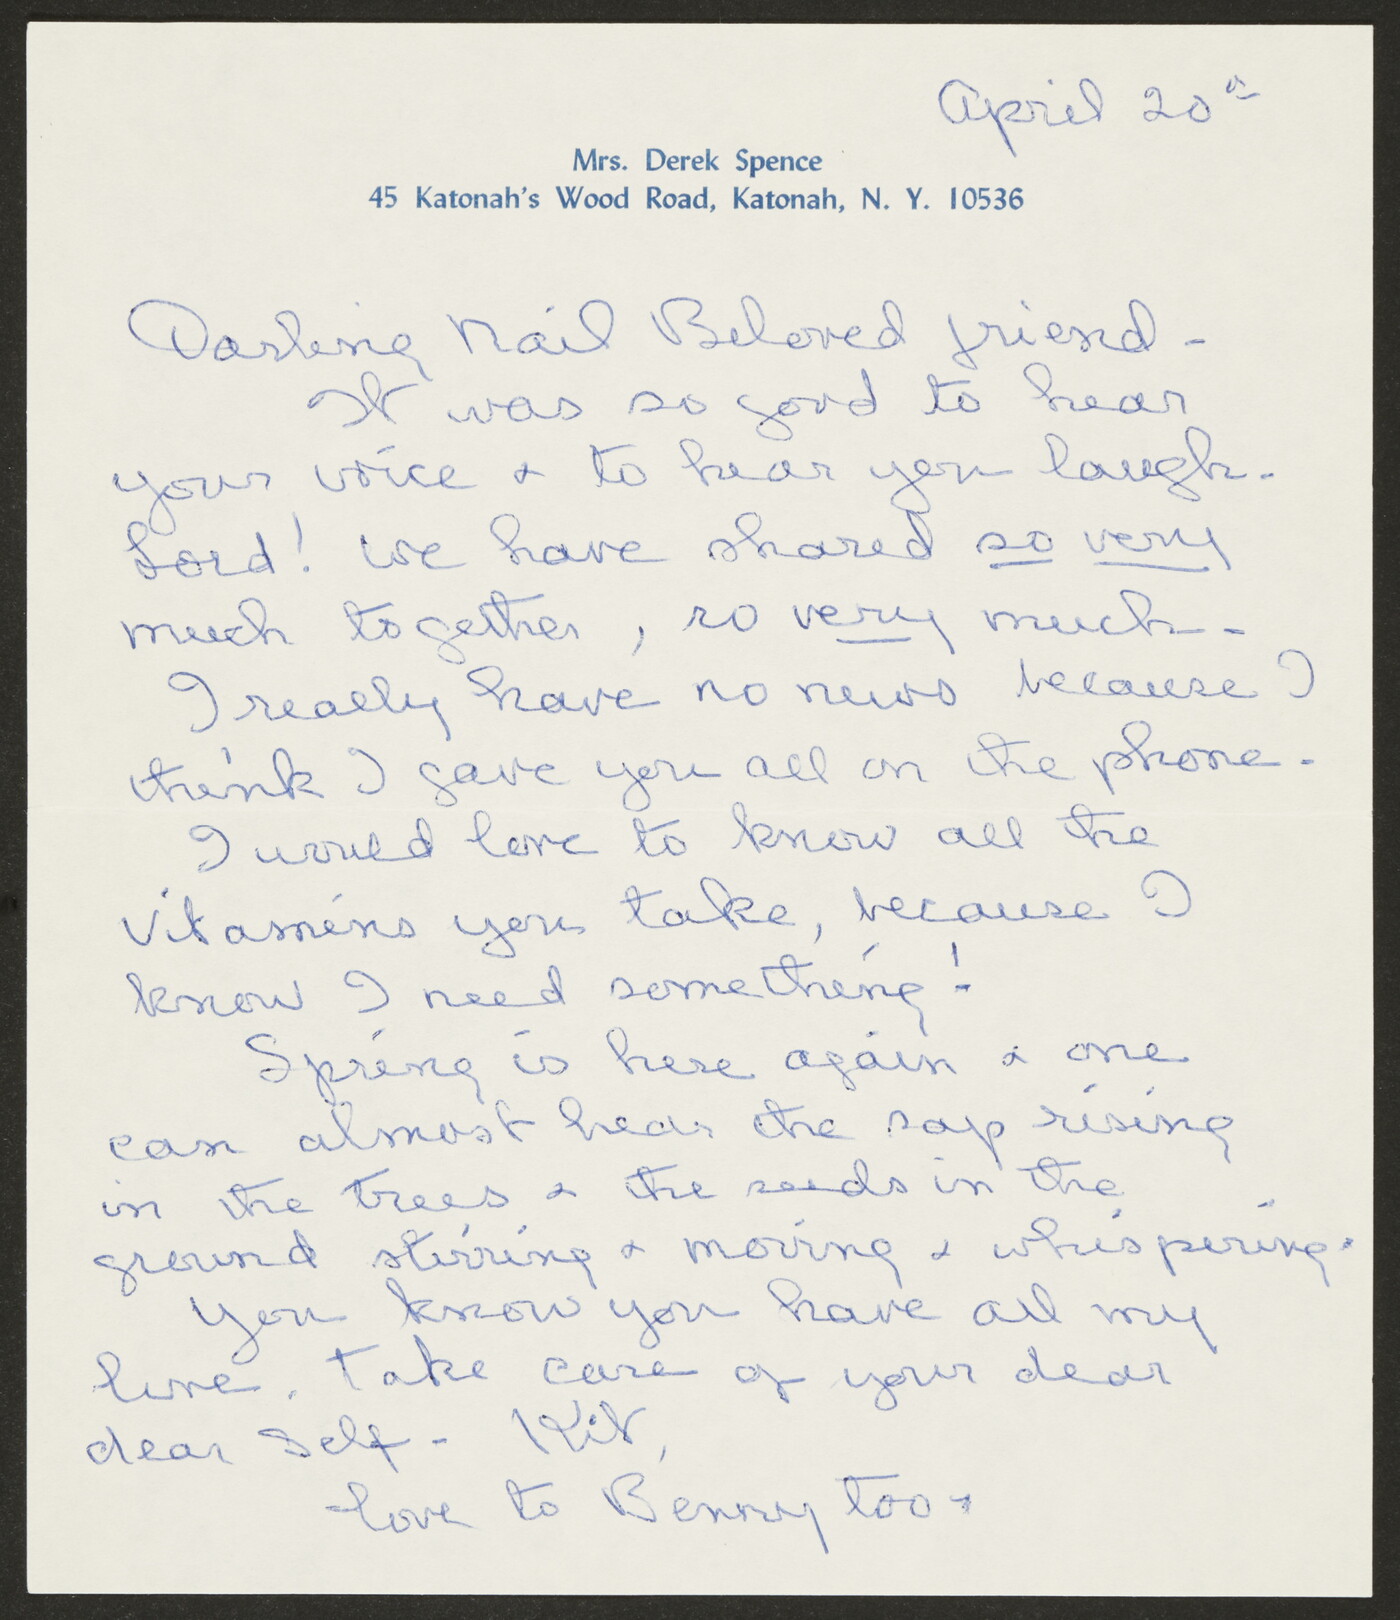 April 20th
Mrs. Derek Spence
45 Katonah's Wood Road, Katonah, N. Y. 10536
Darling Nail Beloved friend -
It was so good to hear
your voice & to hear you laugh -
Lord! we have shared so very
much together, so very much -
I really have no news because I
think I gave you all on the phone -
I would love to know all the
vitamins you take, because I
know I need something!
Spring is here again & one
can almost hear the sap rising
in the trees & the seeds in the
ground stirring & moving & whispering.
You know you have all my
love. Take care of your dear
dear Self - Kit,
love to Benny too -